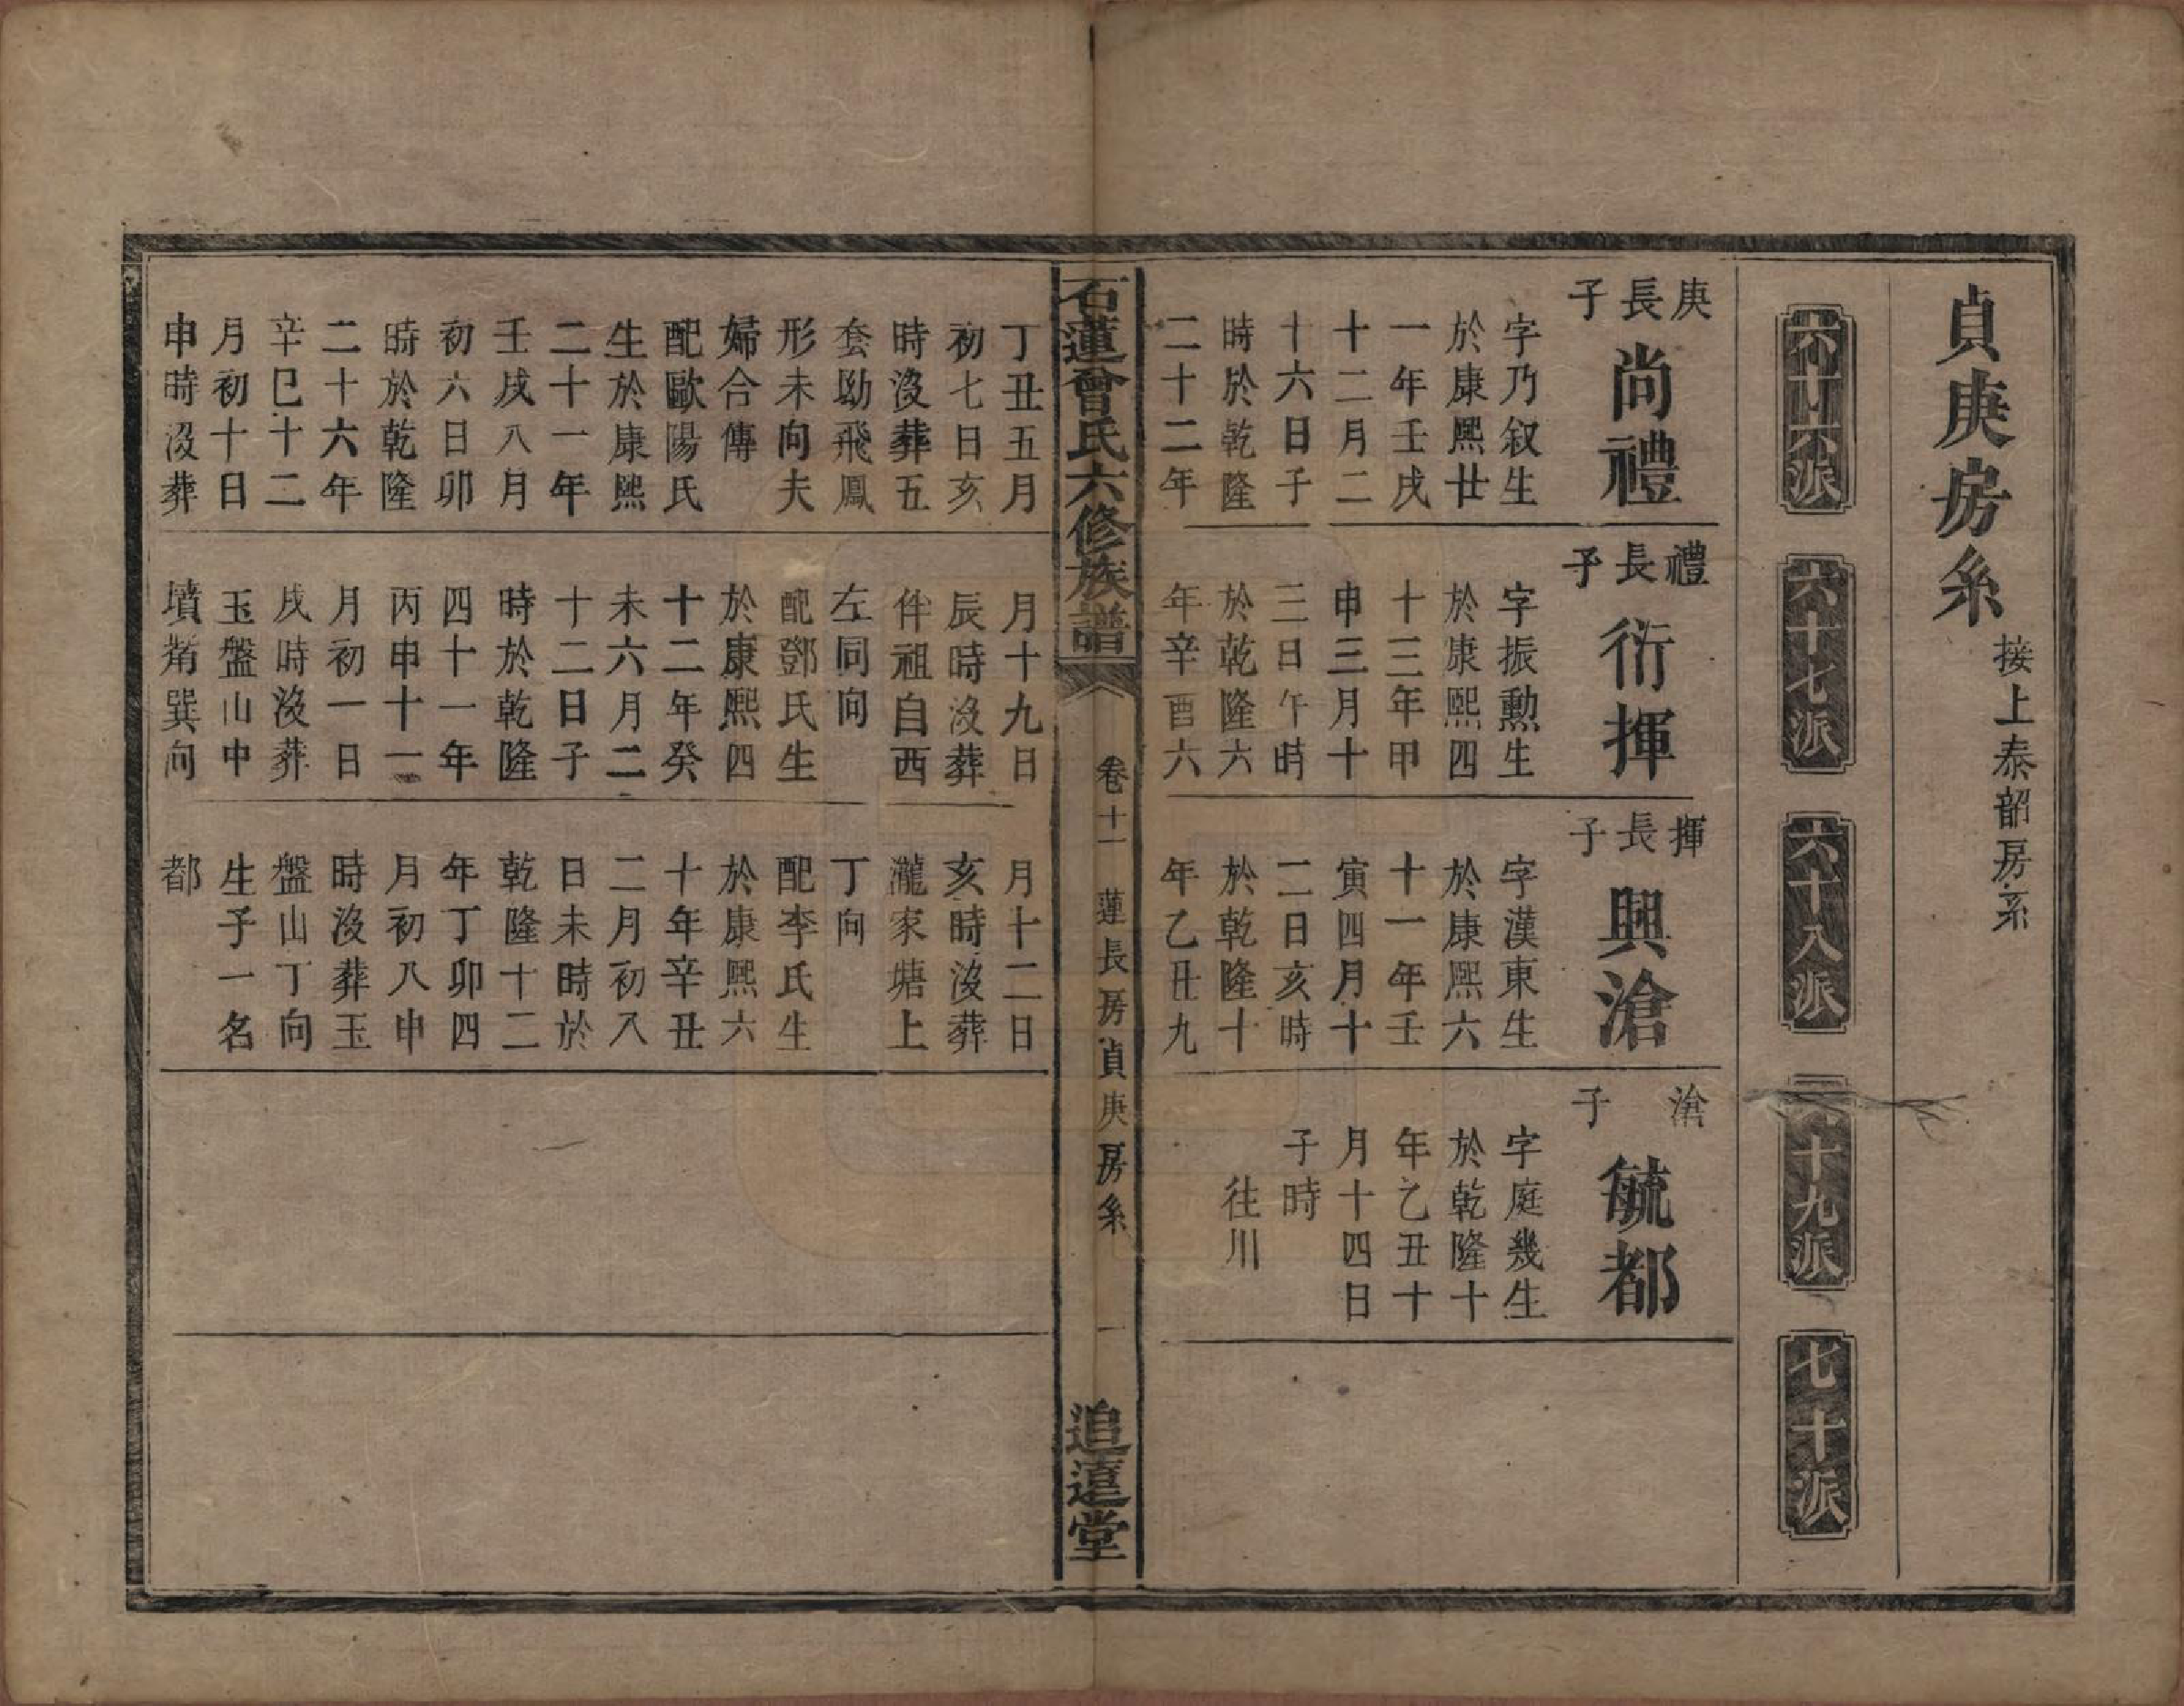 貞庚房系
接上泰韶房系
六十六派
六十七派
六十八派
十九派
七十派
庚長子
尚禮
字乃叙生
於康熙廿
一年壬戌
十二月二
十六日子
時於乾隆
二十二年
丁丑五月
初七日亥
時沒葬五
套坳飛鳳
形未向夫
婦合傳
配歐陽氏
生於康熙
二十一年
壬戌八月
初六日卯
時於乾隆
二十六年
辛巳十二
月初十日
申時沒葬
禮長子
衍揮
字振勳生
於康熙四
十三年甲
申三月十
三日午時
於乾隆六
年辛酉六
月十九日
辰時沒葬
伴祖自西
左同向
配鄧氏生
於康熙四
十二年癸
未六月二
十二日子
時於乾隆
四十一年
丙申十一
月初一日
戌時沒葬
玉盤山中
墳塝巽向
揮長子
興滄
字漢東生
於康熙六
十一年壬
寅四月十
二日亥時
於乾隆十
年乙丑九
月十二日
亥時沒葬
瀧家塘上
丁向
配李氏生
於康熙六
十年辛丑
二月初八
日未時於
乾隆十二
年丁卯四
月初八申
時沒葬玉
盤山丁向
生子一名
都
滄子
毓都
字庭幾生
於乾隆十
年乙丑十
月十四日
子時
往川
石蓮曾氏六修族譜
卷十一
蓮長房貞庚房系
一
追遠堂